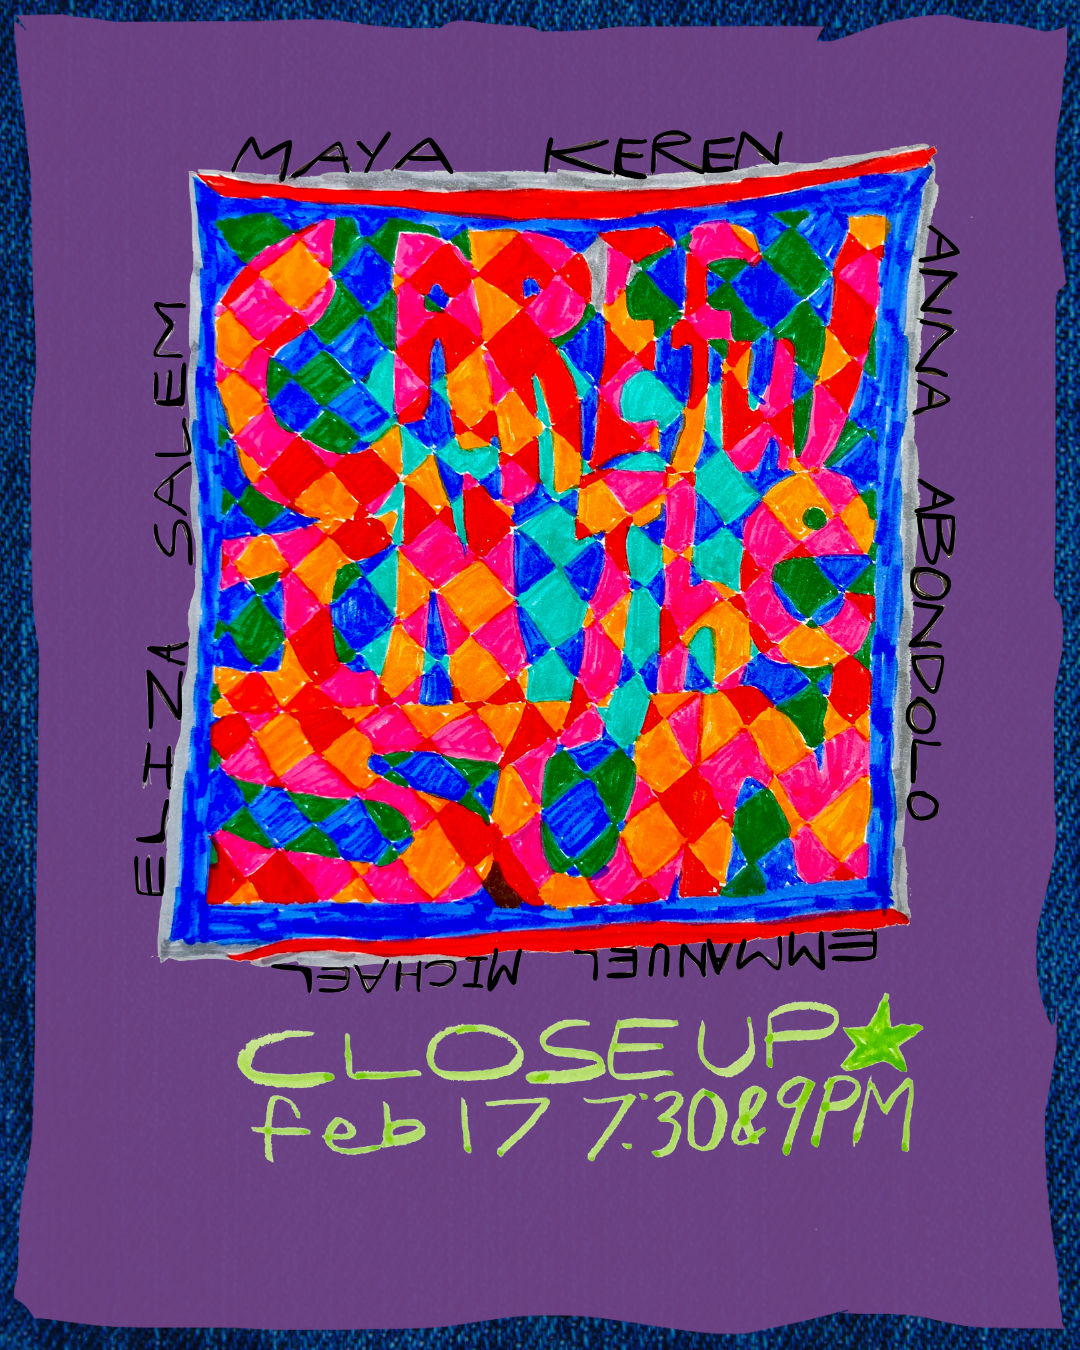 MAYA KEREN
ANNA ABONDOLO
EMMANUEL MICHAEL
ELIZA SALEM
CAREfUL
IN the
SUN
CLOSE UP
feb 17 7:30 & 9PM